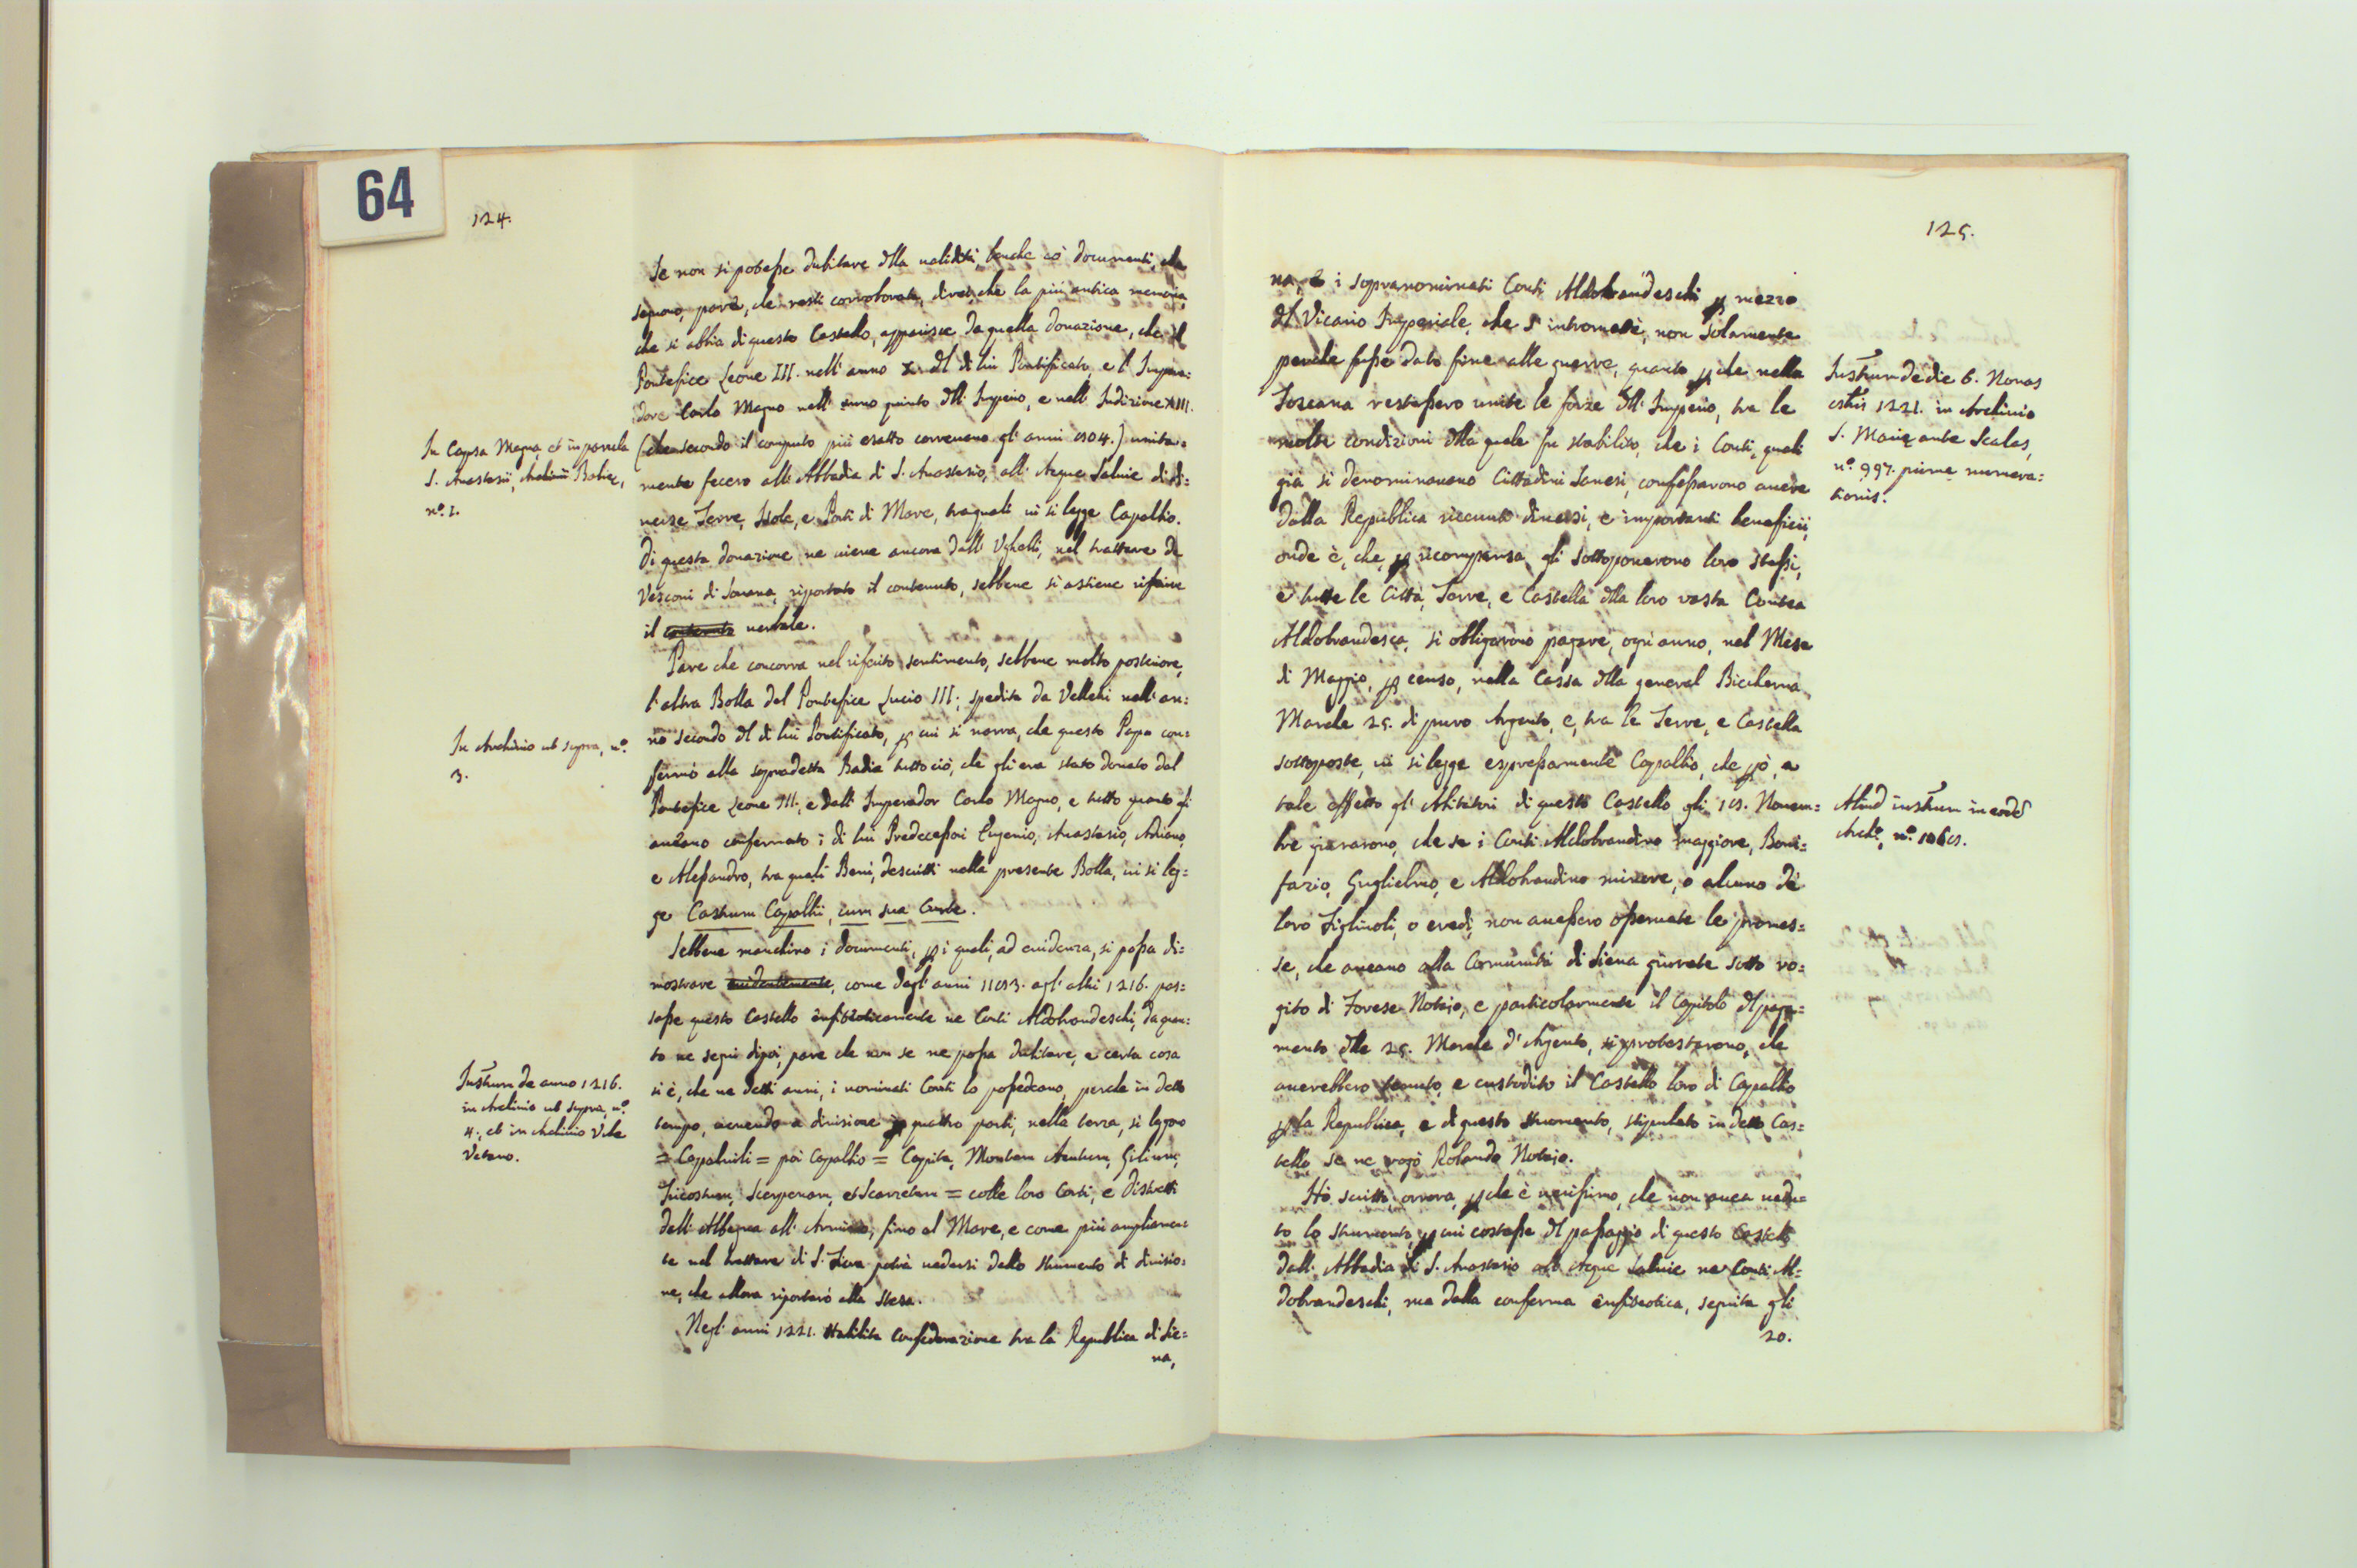 64
124.
Se non si potesse dubitare della validità, benche cò documenti, che
seguono, pare, che resti corroborata, direi, che la più antica memoria,
che si abbia di questo Castello, apparisce da quella donazione, che il
Pontefice Leone III. nell'anno del di lui Pontificato, e l'Impera=
dore Carlo Magno nell'anno quinto dell'Imperio, e nell'Indizione XIII.
(che secondo il computo più esatto correvano gl'anni 804.) unita=
mente fecero all'Abbadia di S. Anastasio, all'Acque Salvie di di=
verse Terre, Isole, e Porti di Mare, tra quali vi si legge Capalbio.
Di questa donazione ne viene ancora dall'Ughelli, nel trattare de
Vescovi di Sovana, riportato il contenuto, sebbene si astiene riferire
il contenuto verbale.
In Capsa Magna, et in parvula
S. Anastasii, Archivii Babiæ,
nº. 1.
Pare che concorra nel riferito sentimento, sebbene molto posteriore,
l'altra Bolla del Pontefice Lucio III; spedita da Velletri nell'an=
no secondo del di lui Pontificato, per cui si narra, che questo Papa con=
fermò alla sopradetta Badia tutto ciò, che gli era stato donato dal
Pontefice Leone III., e dall'Imperador Carlo Magno, e tutto quanto gli
aveano confermato i di lui Predecessori Eugenio, Anastasio, Adriano,
e Alessandro, tra quali Beni, descritti nella presente Bolla, vi si leg=
ge Castrum Capalbii, cum sua Curte.
In Archivio ut supra, nº.
3.
Sebbene manchino i documenti, per i quali, ad evidenza, si possa di=
mostrare evidentemente, come dagl'anni 1183. agl'altri 1216. pas=
sasse questo Castello enfiteoticamente ne Conti Aldobrandeschi, da quan=
to ne seguì dipoi, pare che non se ne possa dubitare, e certa cosa
si è, che ne detti anni, i nominati Conti lo possedeano, perche in detto
tempo, venendo a divisione in quattro parti, nella terza, si leggono
= Capalvili = poi Capalbio = Capita, Montem Acutum, Gilium,
Tricostum, Scerpenam, et Scarcetam = colle loro Corti, e Distretti
dall'Albegna all'Arminio, fino al Mare, e come più ampliamen=
te nel trattare di S. Fiora potrà vedersi dallo strumento di divisio=
ne, che allora riporterò alla stesa.
Instrum de anno 1216.
in Archivio ut supra, nº.
4., et in Archivio Urbe
Vetano.
Negl'anni 1221. stabilita confederazione tra la Republica di Sie=
na,
125.
na, e i sopranominati Conti Aldobrandeschi per mezzo
del Vicario Imperiale, che s'intromesse, non solamente
perche fusse dato fine alle guerre, quanto perche nella
Toscana restassero unite le forze dell'Imperio, tra le
molte condizioni della quale fu stabilito, che i Conti, quali
già si denominavano Cittadini Sanesi, confessarono avere
dalla Republica ricevuto diversi, e importanti beneficii,
onde è, che per ricompensa gli sottoponerono loro stessi,
e tutte le Città, Terre, e Castella della loro vasta Contea
Aldobrandesca, si obligarono pagare, ogn'anno, nel Mese
di Maggio, per censo, nella Cassa della general Biccherna,
Marche 25. di puro Argento, e, tra le Terre, e Castella
sottoposte, vi si legge espressamente Capalbio, che però, a
tale effetto gl'Abitatori di questo Castello gli 18. Novem=
bre giurarono, che se i Conti Aldobrandino maggiore, Boni=
fazio, Guglielmo, e Aldobrandino minore, o alcuno de
loro Figliuoli, o eredi, non avessero osservate le promes=
se, che aveano alla Comunità di Siena giurate sotto ro=
gito di Forese Notaio, e particolarmente il Capitolo del paga=
mento delle 25. Marche d'Argento, si protestarono, che
averebbero tenuto, e custodito il Castello loro di Capalbio
per la Republica, e di questo strumento, stipulato in detto Cas=
tello se ne rogò Rolando Notaio.
Instrum de die 6. Nonas
1221. in Archivio
S. Mariæ ante Scalas,
nº. 997. primæ numera=
tionis.
Aliud instrum in eode
Archº, nº. 1068.
Hò scritto orora, perche è verissimo, che non avea vedu=
to lo strumento, per cui costasse del passaggio di questo Castello
dall'Abbadia di S. Anastasio all'Acque Salvie ne Conti Al=
dobrandeschi, ma dalla conferma enfiteotica, seguita gli
20.